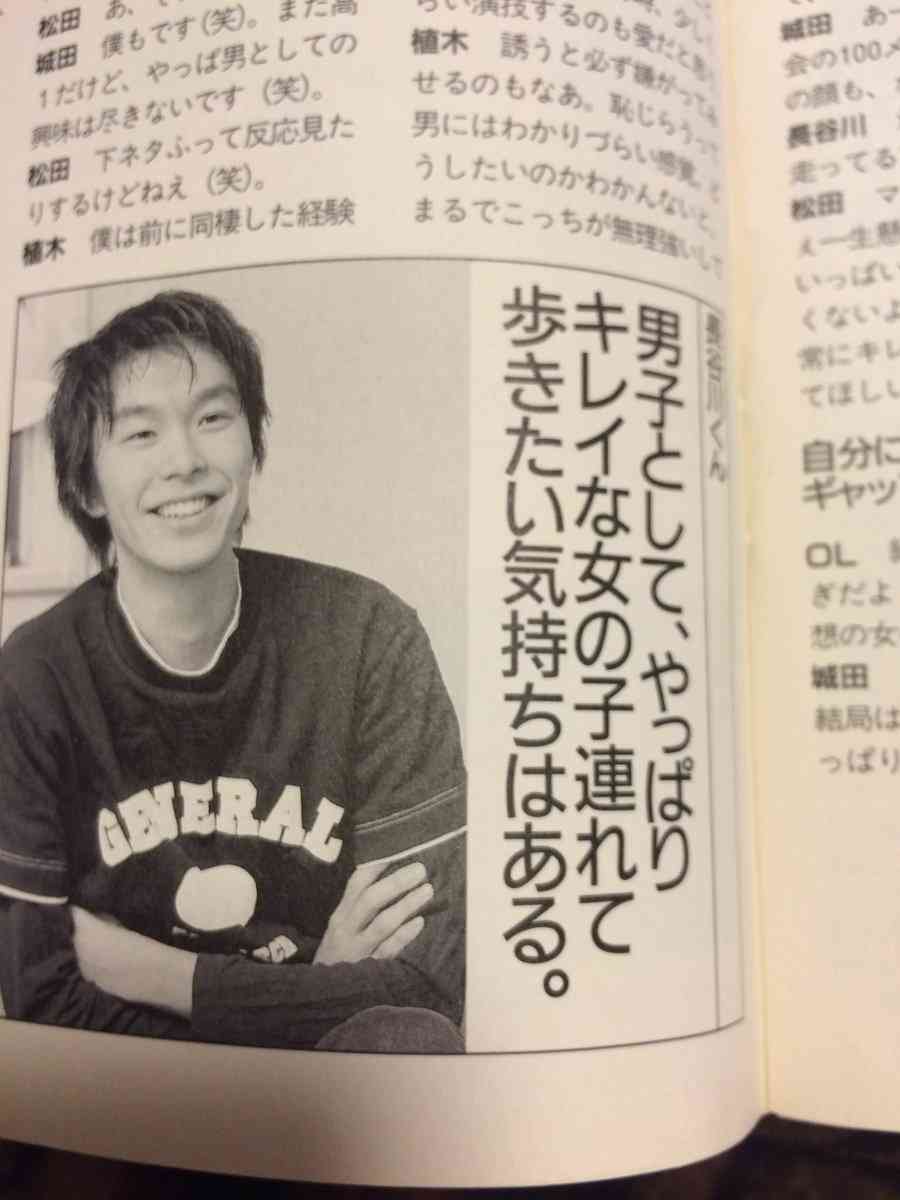 松田 あ、
城田 僕もです(笑)。まだ高
1だけど、やっぱ男としての
興味は尽きないです(笑)。
松田 下ネタふって反応見た
りするけどねえ(笑)。
植木 僕は前に同棲した経験
らい演技するのも愛だと思
植木 誘うと必ず嫌がってみ
せるのもなあ。恥じらうって
男にはわかりづらい感覚。ど
うしたいのかわかんないと、
まるでこっちが無理強いして
長谷川くん
男子として、やっぱり
キレイな女の子連れて
歩きたい気持ちはある。
GENERAL
城田 あー
会の100メ
の顔も、
長谷川
走ってる
松田 マ
ぇ一生懸
いっぱい
くないよ
常にキレ
てほしい
自分に
ギャッ
OL
ぎだよ
想の女
城田
結局は
っぱり